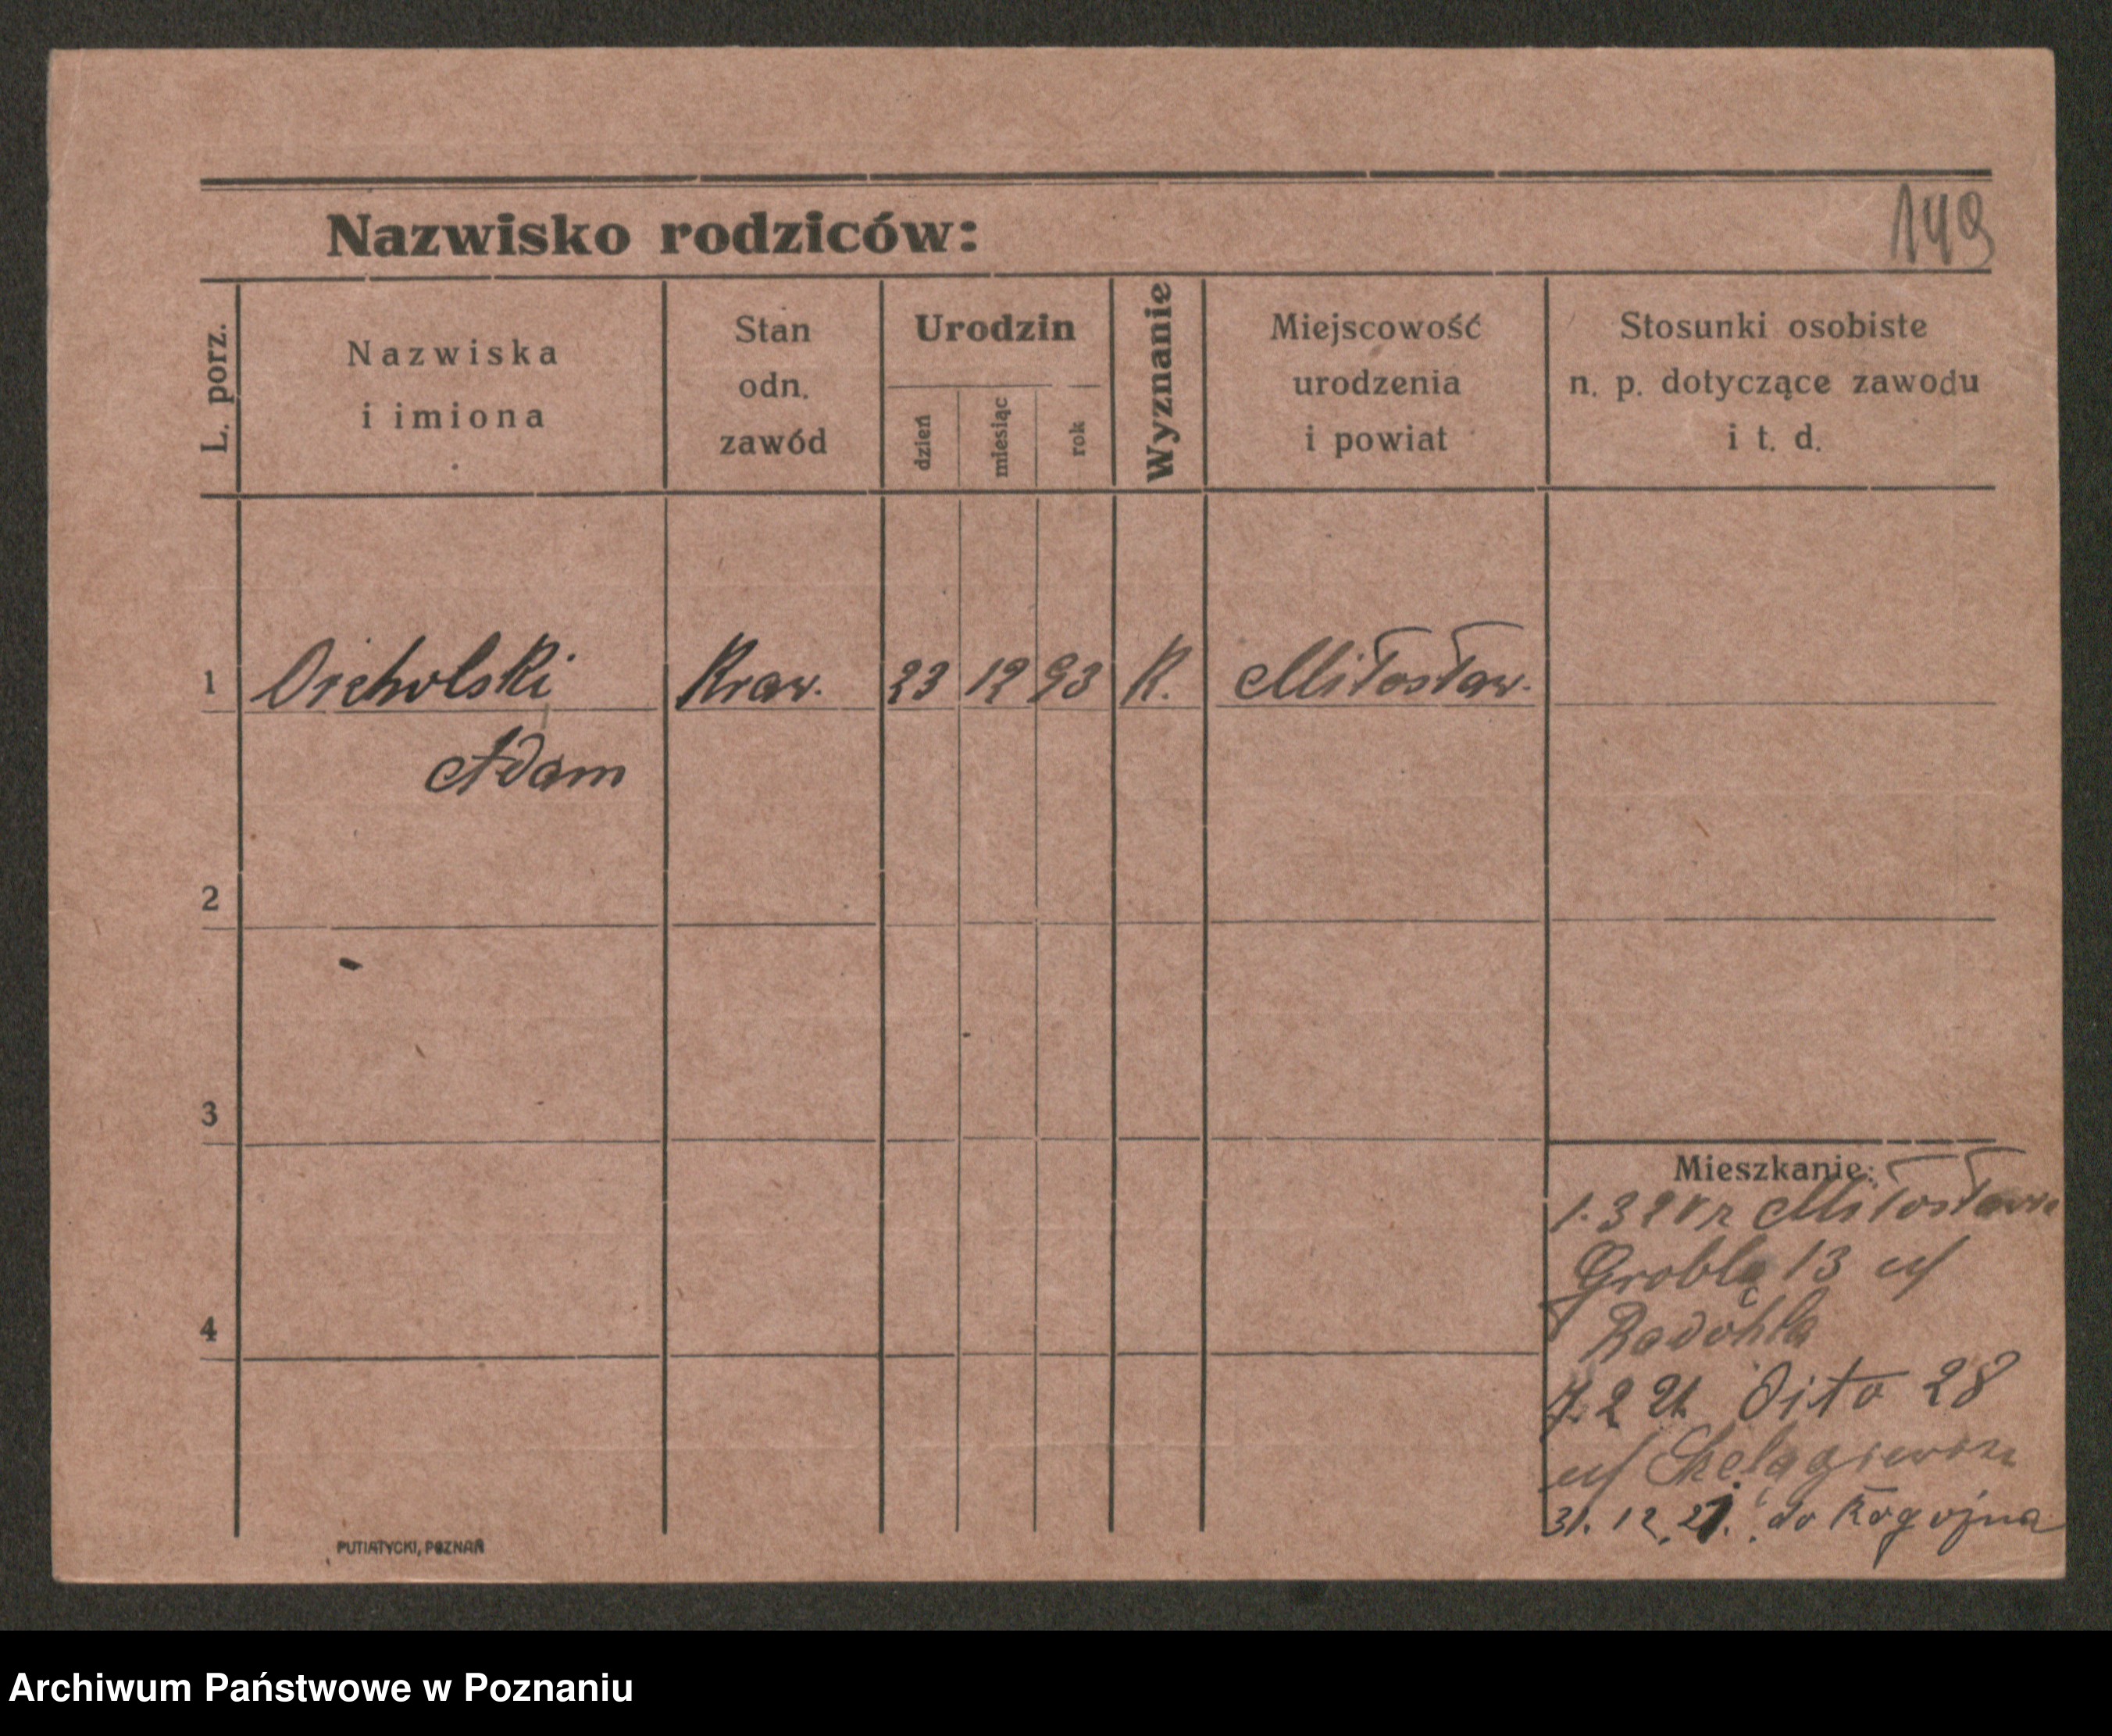 149
Nazwisko rodziców:
L. porz.
Nazwiska
i imiona
Stan
odn.
zawód
Urodzin
dzień
miesiąc
rok
Wyznanie
Miejscowość
urodzenia
i powiat
Stosunki osobiste
n. p. dotyczące zawodu
i t. d.
1 Kraw. 23 12 93 K. Miłosław.
Adam
2
3
4
Mieszkanie:
1. 3 z Miłosławia
Grobla 13
7. 2 21 Dito 28
31. 12. 21. do Rogoźna
PUTIATYCKI, POZNAŃ
Archiwum Państwowe w Poznaniu